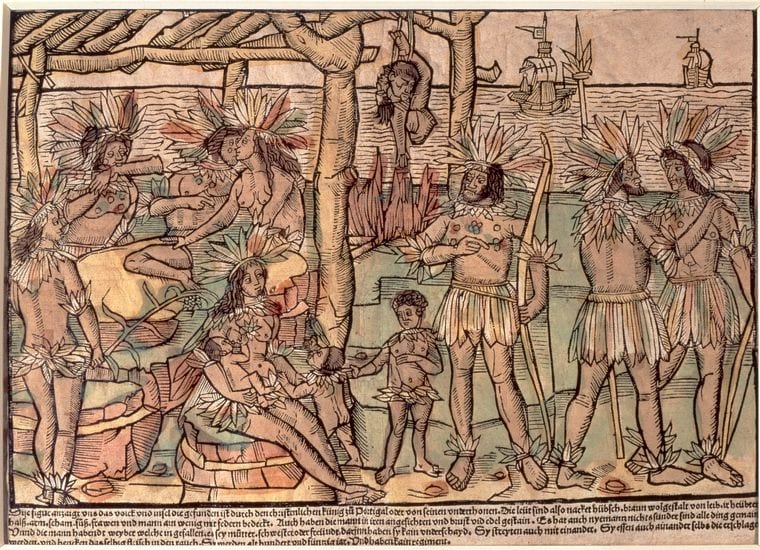 Dise figur anzaigt vns das volck vnd insel die gefunden ist durch den christenlichen künig zů Portigal oder von seinen vnderthonen. Die leüt sind also nacket hübsch. braun wolgestalt von leib. ir heübter.
halß. arm. scham. füß. frawen vnd mann ain wenig mit federn bedeckt. Auch haben die mann in iren angesichten vnd brust vil edel gestain. Es hat auch nyemann nichts sunder sind alle ding gemain
Vnnd die mann habendt weyber welche in gefallen. es sey můtter. schwester oder freündt. darinn haben sy kain vnderschayd. Sy streyten auch mit einander. Sy essen auch ainander selbs die erschlage
werden. vnd hencken das selbig fleisch in den rauch. Sy werden alt hundert vnd iar. Vnd haben kain regiment.